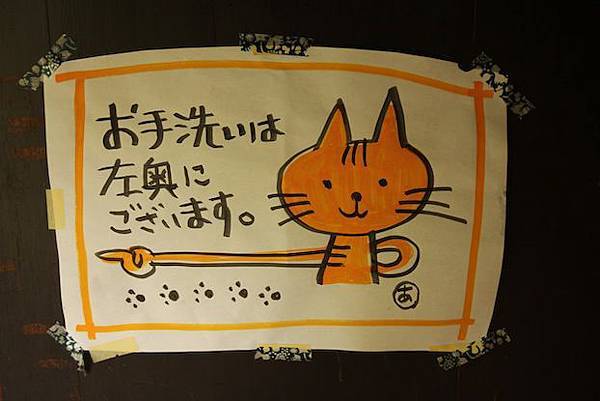 お手洗いは
左奥に
ございます。
あ